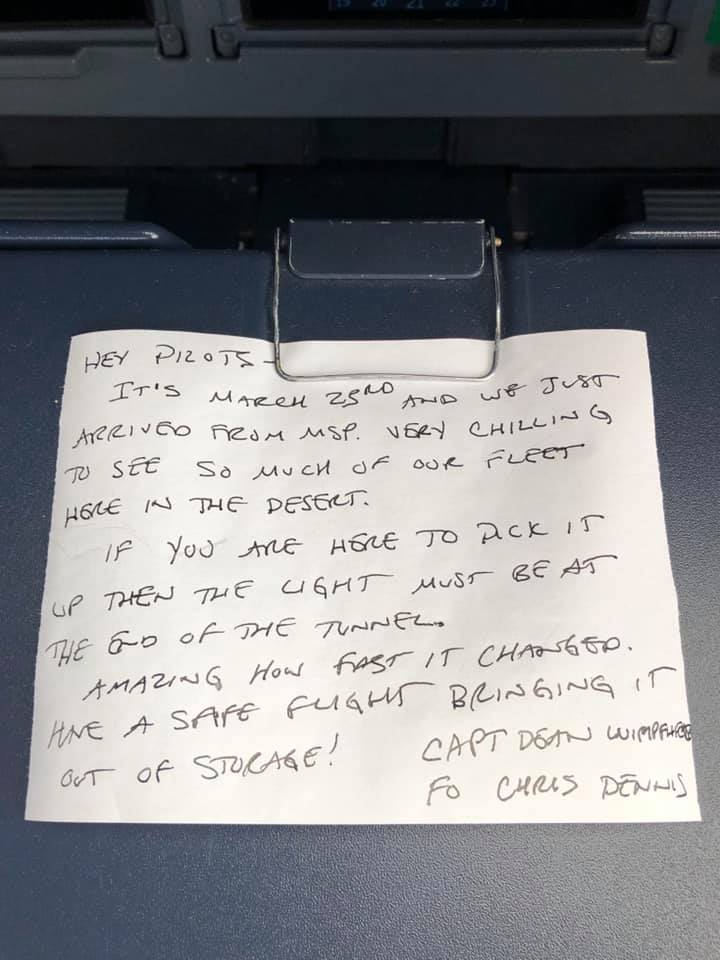 19 20 21 22 23
HEY PILOTS-
IT'S MARCH 23RD AND WE JUST
ARRIVED FROM MSP. VERY CHILLING
TO SEE SO MUCH OF OUR FLEET
HERE IN THE DESERT.
IF YOU ARE HERE TO PICK IT
UP THEN THE LIGHT MUST BE AT
THE END OF THE TUNNEL.
AMAZING HOW FAST IT CHANGED.
HAVE A SAFE FLIGHT BRINGING IT
OUT OF STORAGE!
CAPT DEAN
FO CHRIS DENNIS